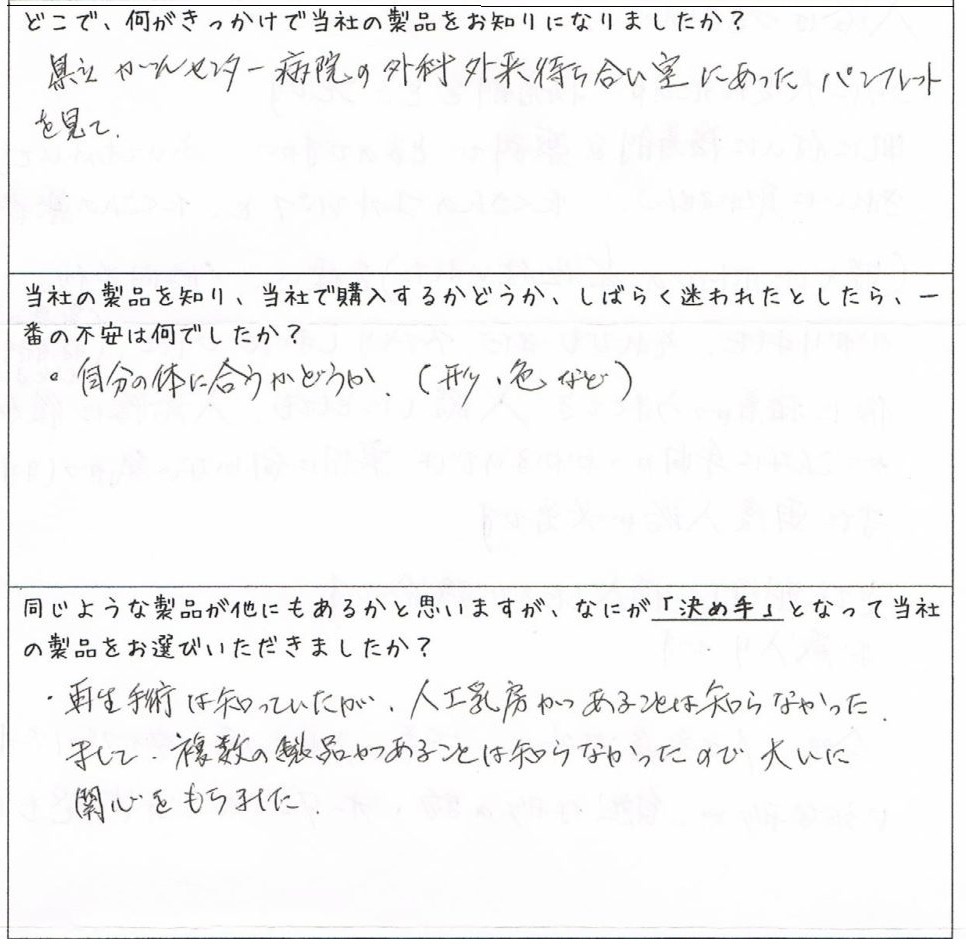 どこで、何がきっかけで当社の製品をお知りになりましたか？
県立がんセンター病院の外科外来待ち合い室にあったパンフレット
を見て.
当社の製品を知り、当社で購入するかどうか、しばらく迷われたとしたら、一
番の不安は何でしたか？
・自分の体に合うかどうか、（形、色など）
同じような製品が他にもあるかと思いますが、なにが「決め手」となって当社
の製品をお選びいただきましたか？
・再生手術は知っていたが、人工乳房がつあることは知らなかった.
そして、複数の製品がつあることは知らなかったので大いに
関心をもちました.